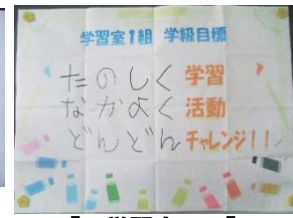 学習室1組 学級目標
たのしく学習
なかよく活動
どんどんチャレンジ!!